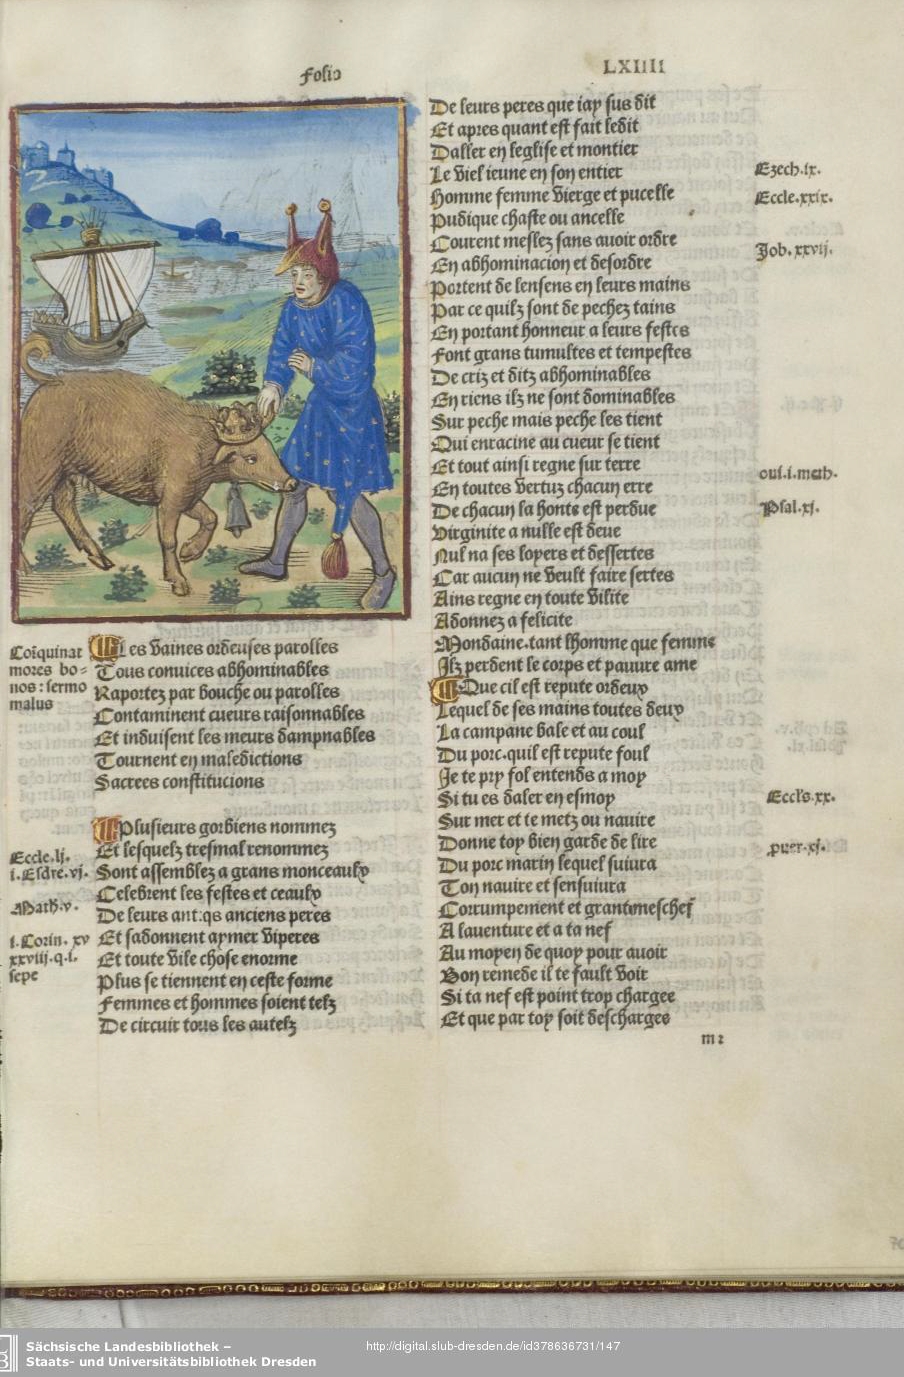 Folio
LXIIII
Coïquinat
mores bo=
nos: sermo
malus
Les vaines ordeuses parolles
Tous conuices abhominables
Raportez par bouche ou parolles
Contaminent cueurs raisonnables
Et induisent les meurs dampnables
Tournent en maledictions
Sacrees constitucions
Plusieurs gorbiens nommez
Et lesquelz tresmal renommez
Sont assemblez a grans monceaulx
Celebrent les festes et ceaulx
De leurs ant:qs anciens peres
Et sadonnent aymer viperes
Et toute vile chose enorme
Plus se tiennent en ceste forme
Femmes et hommes soient telz
De circuir tous les autelz
Eccle.lj.
i.Esdre.vj.
Math.v.
i.Corin.xv
xxviij.q.i.
sepe
De leurs peres que iay sus dit
Et apres quant est fait ledit
Daller en leglise et montier
Le viel ieune en son entier
Homme femme vierge et pucelle
Pudique chaste ou ancelle
Courent meslez sans auoir ordre
En abhominacion et desordre
Portent de lensens en leurs mains
Par ce quilz sont de pechez tains
En portant honneur a leurs festes
Font grans tumultes et tempestes
De criz et ditz abhominables
En riens ilz ne sont dominables
Sur peche mais peche les tient
Qui enracine au cueur se tient
Et tout ainsi regne sur terre
En toutes vertuz chacun erre
De chacun la honte est perdue
Virginite a nulle est deue
Nul na ses loyers et dessertes
Car aucun ne veult faire sertes
Ains regne en toute vilite
Adonnez a felicite
Mondaine.tant lhomme que femme
Ilz perdent le corps et pauure ame
Que cil est repute ordeux
Lequel de ses mains toutes deux
La campane bale et au coul
Du porc.quil est repute foul
Je te pry fol entends a moy
Si tu es daler en esmoy
Sur mer et te metz ou nauire
Donne toy bien garde de lire
Du porc marin lequel suiura
Ton nauire et sensuiura
Corrumpement et grant meschef
A lauenture et a ta nef
Au moyen de quoy pour auoir
Bon remede il te fault voir
Si ta nef est point trop chargee
Et que par toy soit deschargee
m2
Ezech.ix.
Eccle.xxix.
Job.xxvij.
oui.i.meth.
Psal.xj.
Eccls.xx.
puer.xj.
Sächsische Landesbibliothek –
Staats- und Universitätsbibliothek Dresden
http://digital.slub-dresden.de/id378636731/147